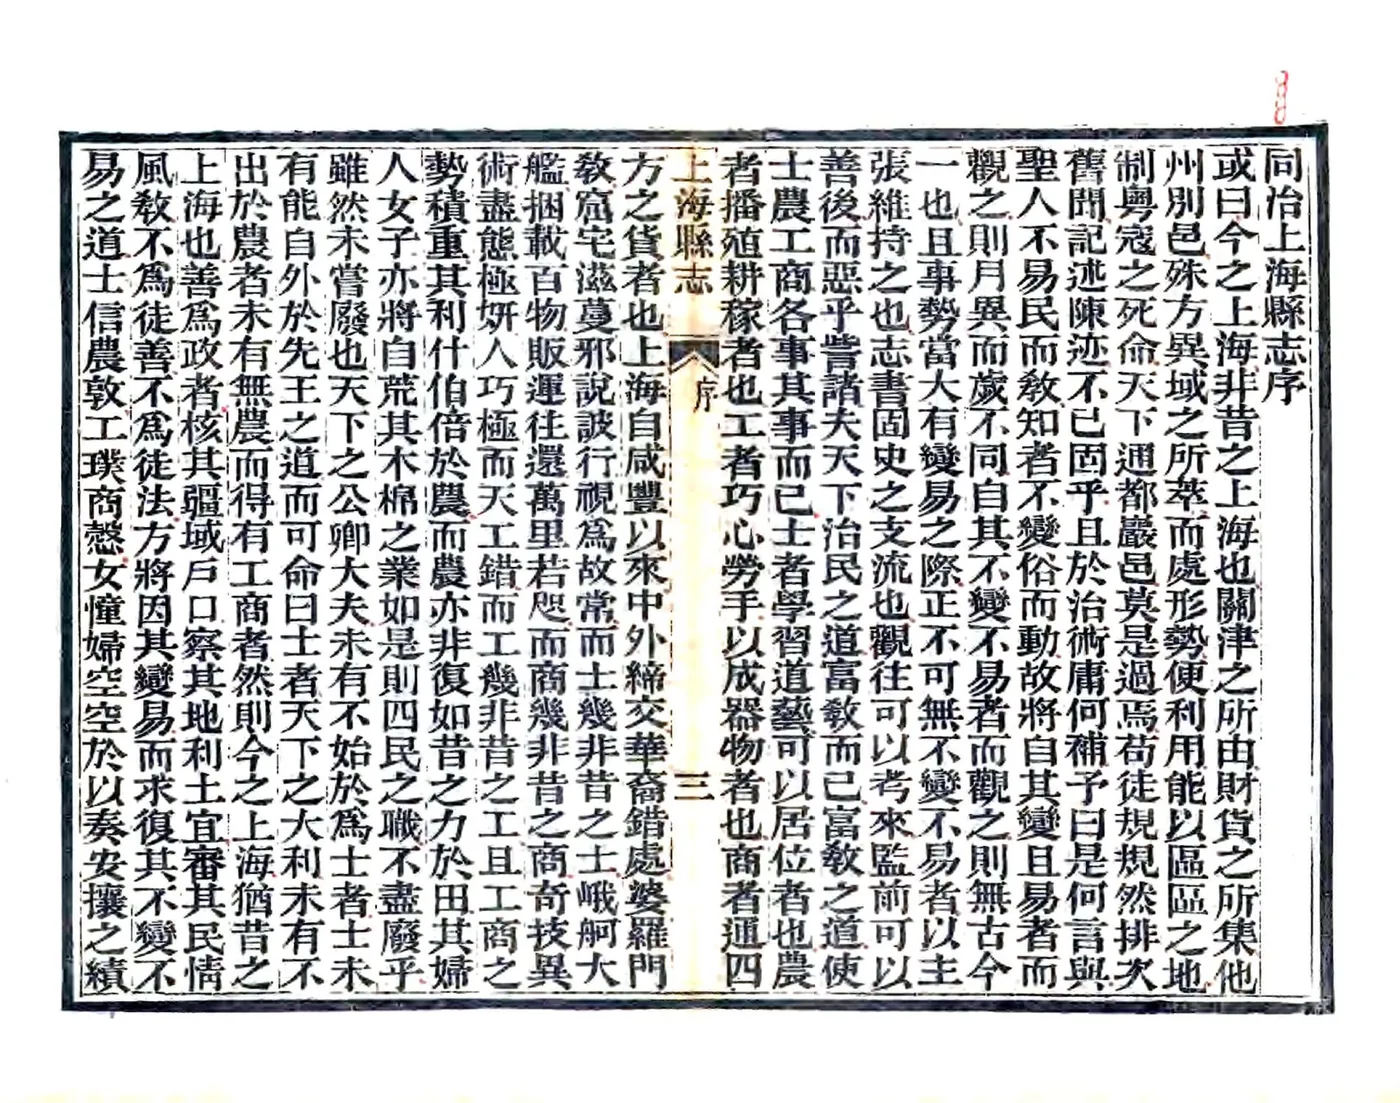 同治上海縣志序
或曰今之上海非昔之上海也關津之所由財貨之所集他
州別邑殊方異域之所萃而處形勢便利用能以區區之地
制粵寇之死命天下通都巖邑莫是過焉苟徒規規然排次
舊聞記述陳迹不已固乎且於治術庸何補予曰是何言與
聖人不易民而敎知者不變俗而動故將自其變且易者而
觀之則月異而歲不同自其不變不易者而觀之則無古今
一也且事勢當大有變易之際正不可無不變不易者以主
張維持之也志書固史之支流也觀往可以考來監前可以
善後而惡乎訾諸夫天下治民之道富敎而已富敎之道使
士農工商各事其事而已士者學習道藝可以居位者也農
者播殖耕稼者也工者巧心勞手以成器物者也商者通四
上海縣志
序
三
方之貨者也上海自咸豐以來中外締交華裔錯處婆羅門
敎窟宅滋蔓邪說詖行視爲故常而士幾非昔之士峨舸大
艦捆載百物販運往還萬里若咫而商幾非昔之商奇技異
術盡態極妍人巧極而天工錯而工幾非昔之工且工商之
勢積重其利什伯倍於農而農亦非復如昔之力於田其婦
人女子亦將自荒其木棉之業如是則四民之職不盡廢乎
雖然未嘗廢也天下之公卿大夫未有不始於爲士者士未
有能自外於先王之道而可命曰士者天下之大利未有不
出於農者未有無農而得有工商者然則今之上海猶昔之
上海也善爲政者核其疆域戶口察其地利土宜審其民情
風敎不爲徒善不爲徒法方將因其變易而求復其不變不
易之道士信農敦工璞商愨女憧婦空空於以奏安攘之績